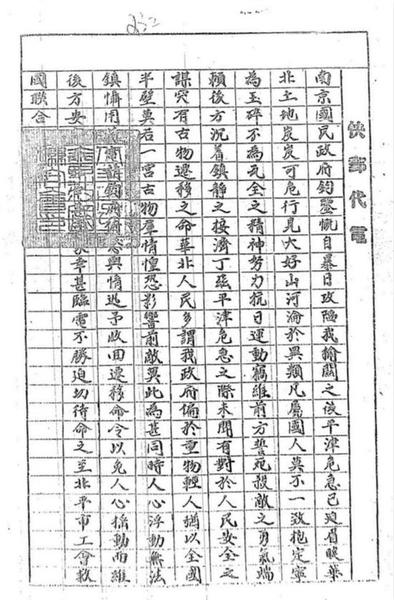 快郵代電
南京國民政府鈞鑒慨自暴日攻陷我榆關之後平津危急已迫眉睫華
北土地岌岌可危行見大好山河淪於異類凡屬國人莫不一致抱定寧
為玉碎不為瓦全之精神努力抗日運動竊維前方誓死殺敵之勇氣端
賴後方沉着鎮靜之接濟丁茲平津危急之際未聞有對於人民安全之
謀突有古物遷移之命華北人民多謂我政府偏於重物輕人猶以全國
半壁莫若一宮古物羣情惶恐影響前敵莫此為甚同時人心浮動無法
鎮懾用 輿情迅予收回遷移命令以免人心搖動而維
後方安 幸甚臨電不勝迫切待命之至北平市工會救
國聯合